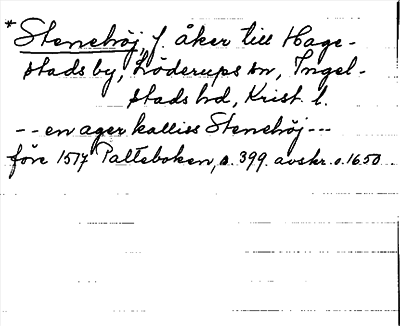 *Stenehöj, f. åker till Hage-
stads by, Löderups sn, Ingel-
stads hd, Krist. l.
-- en ager kalliss Stenehöj ---
före 1517 Palteboken, s. 399. avskr. o. 1650